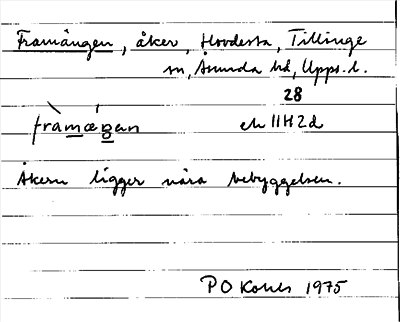 Framängen, åker, Hovdesta, Tillinge
sn, Åsunda hd, Upps. l.
28
ek 11H2d
Åkern ligger nära bebyggelsen.
1975